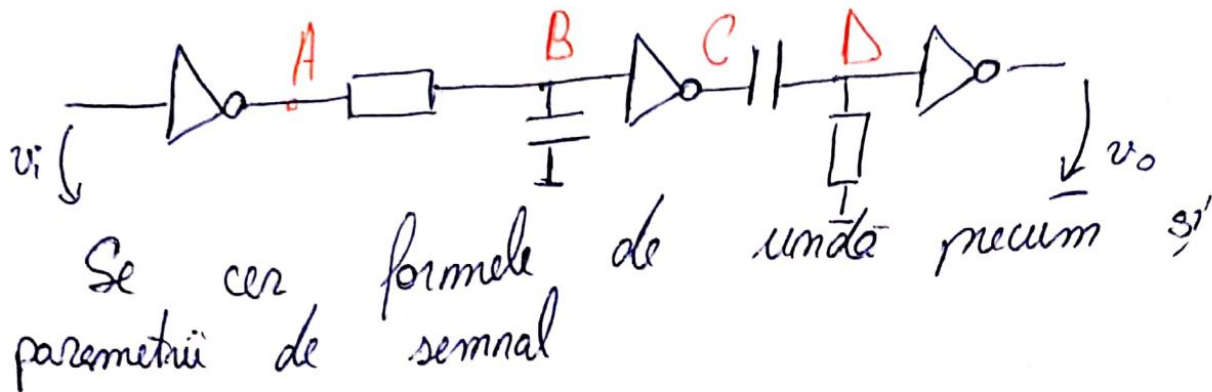 A B C D
vi vo
Se cer formele de undă precum și
parametrii de semnal